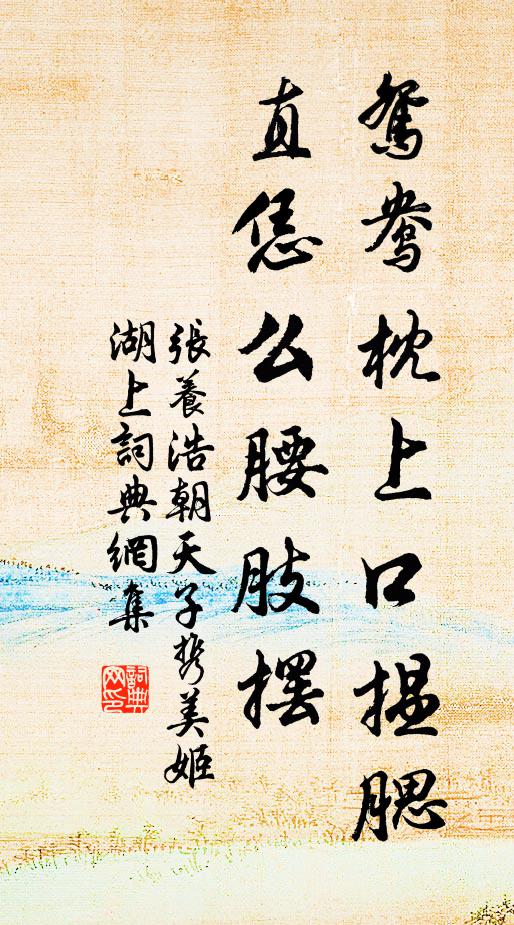 鴛鴦枕上口揾腮
直恁么腰肢擺
張養浩朝天子携美姬
湖上詞典網集
詞典
网印